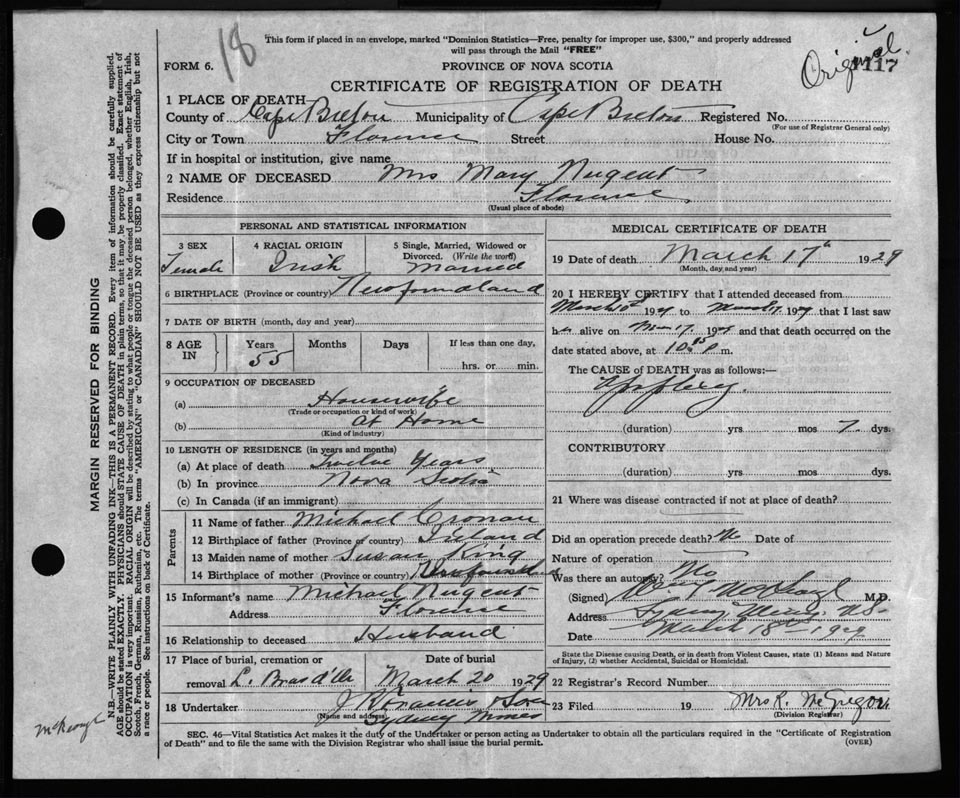 18
This form if placed in an envelope, marked "Dominion Statistics—Free, penalty for improper use, $300," and properly addressed
will pass through the Mail "FREE"
Original
1117
FORM 6. PROVINCE OF NOVA SCOTIA
CERTIFICATE OF REGISTRATION OF DEATH
1 PLACE OF DEATH
County of Cape Breton Municipality of Cape Breton Registered No.
(For use of Registrar General only)
City or Town Florence Street House No.
If in hospital or institution, give name
2 NAME OF DECEASED Mrs Mary Nugent
Residence Florence
(Usual place of abode)
PERSONAL AND STATISTICAL INFORMATION
3 SEX 4 RACIAL ORIGIN 5 Single, Married, Widowed or
Divorced. (Write the word)
Female Irish Married
6 BIRTHPLACE (Province or country) Newfoundland
7 DATE OF BIRTH (month, day and year)
8 AGE IN Years Months Days If less than one day,
55 hrs. or min.
9 OCCUPATION OF DECEASED
(a) Housewife
(Trade or occupation or kind of work)
(b) At Home
(Kind of industry)
10 LENGTH OF RESIDENCE (in years and months)
(a) At place of death Twelve Years
(b) In province Nova Scotia
(c) In Canada (if an immigrant)
Parents
11 Name of father Michael Cronan
12 Birthplace of father (Province or country) Ireland
13 Maiden name of mother Susan King
14 Birthplace of mother (Province or country) Newfoundland
15 Informant's name Michael Nugent
Address Florence
16 Relationship to deceased Husband
17 Place of burial, cremation or Date of burial
removal L. Bras d'Or March 20 1929
18 Undertaker J & Sons
(Name and address) Sydney Mines
MEDICAL CERTIFICATE OF DEATH
19 Date of death March 17th 1929
(Month, day and year)
20 I HEREBY CERTIFY that I attended deceased from
March 10th 1929 to March 17 1929 that I last saw
her alive on Mar 17 1929 and that death occurred on
date stated above, at 10.15 p m.
The CAUSE of DEATH was as follows:—
Apoplexy
(duration) yrs mos 7 dys.
CONTRIBUTORY
(duration) yrs mos dys.
21 Where was disease contracted if not at place of death?
Did an operation precede death? No Date of
Nature of operation
Was there an autopsy? No
(Signed) M.D.
Address Sydney Mines, N.S.
Date March 18th - 1929
State the Disease causing Death, or in death from Violent Causes, state (1) Means and Nature
of Injury, (2) whether Accidental, Suicidal or Homicidal.
22 Registrar's Record Number
23 Filed 19 Mrs R. McGregor
(Division Registrar)
SEC. 46—Vital Statistics Act makes it the duty of the Undertaker or Person acting as Undertaker to obtain all the particulars required in the "Certificate of Registration
of Death" and to file the same with the Division Registrar who shall issue the burial permit. (OVER)
MARGIN RESERVED FOR BINDING
N.B.—WRITE PLAINLY WITH UNFADING INK—THIS IS A PERMANENT RECORD. Every item of information should be carefully supplied.
AGE should be stated EXACTLY. PHYSICIANS should STATE CAUSE OF DEATH in plain terms, so that it may be properly classified. Exact statement of
OCCUPATION is very important. RACIAL ORIGIN will be described by stating to what people or tongue the deceased person belonged, whether English, Irish,
Scotch, French, German, Russian, Ruthenian, etc. The terms "AMERICAN" or "CANADIAN" SHOULD NOT BE USED as they express citizenship but not
a race or people. See instructions on back of Certificate.